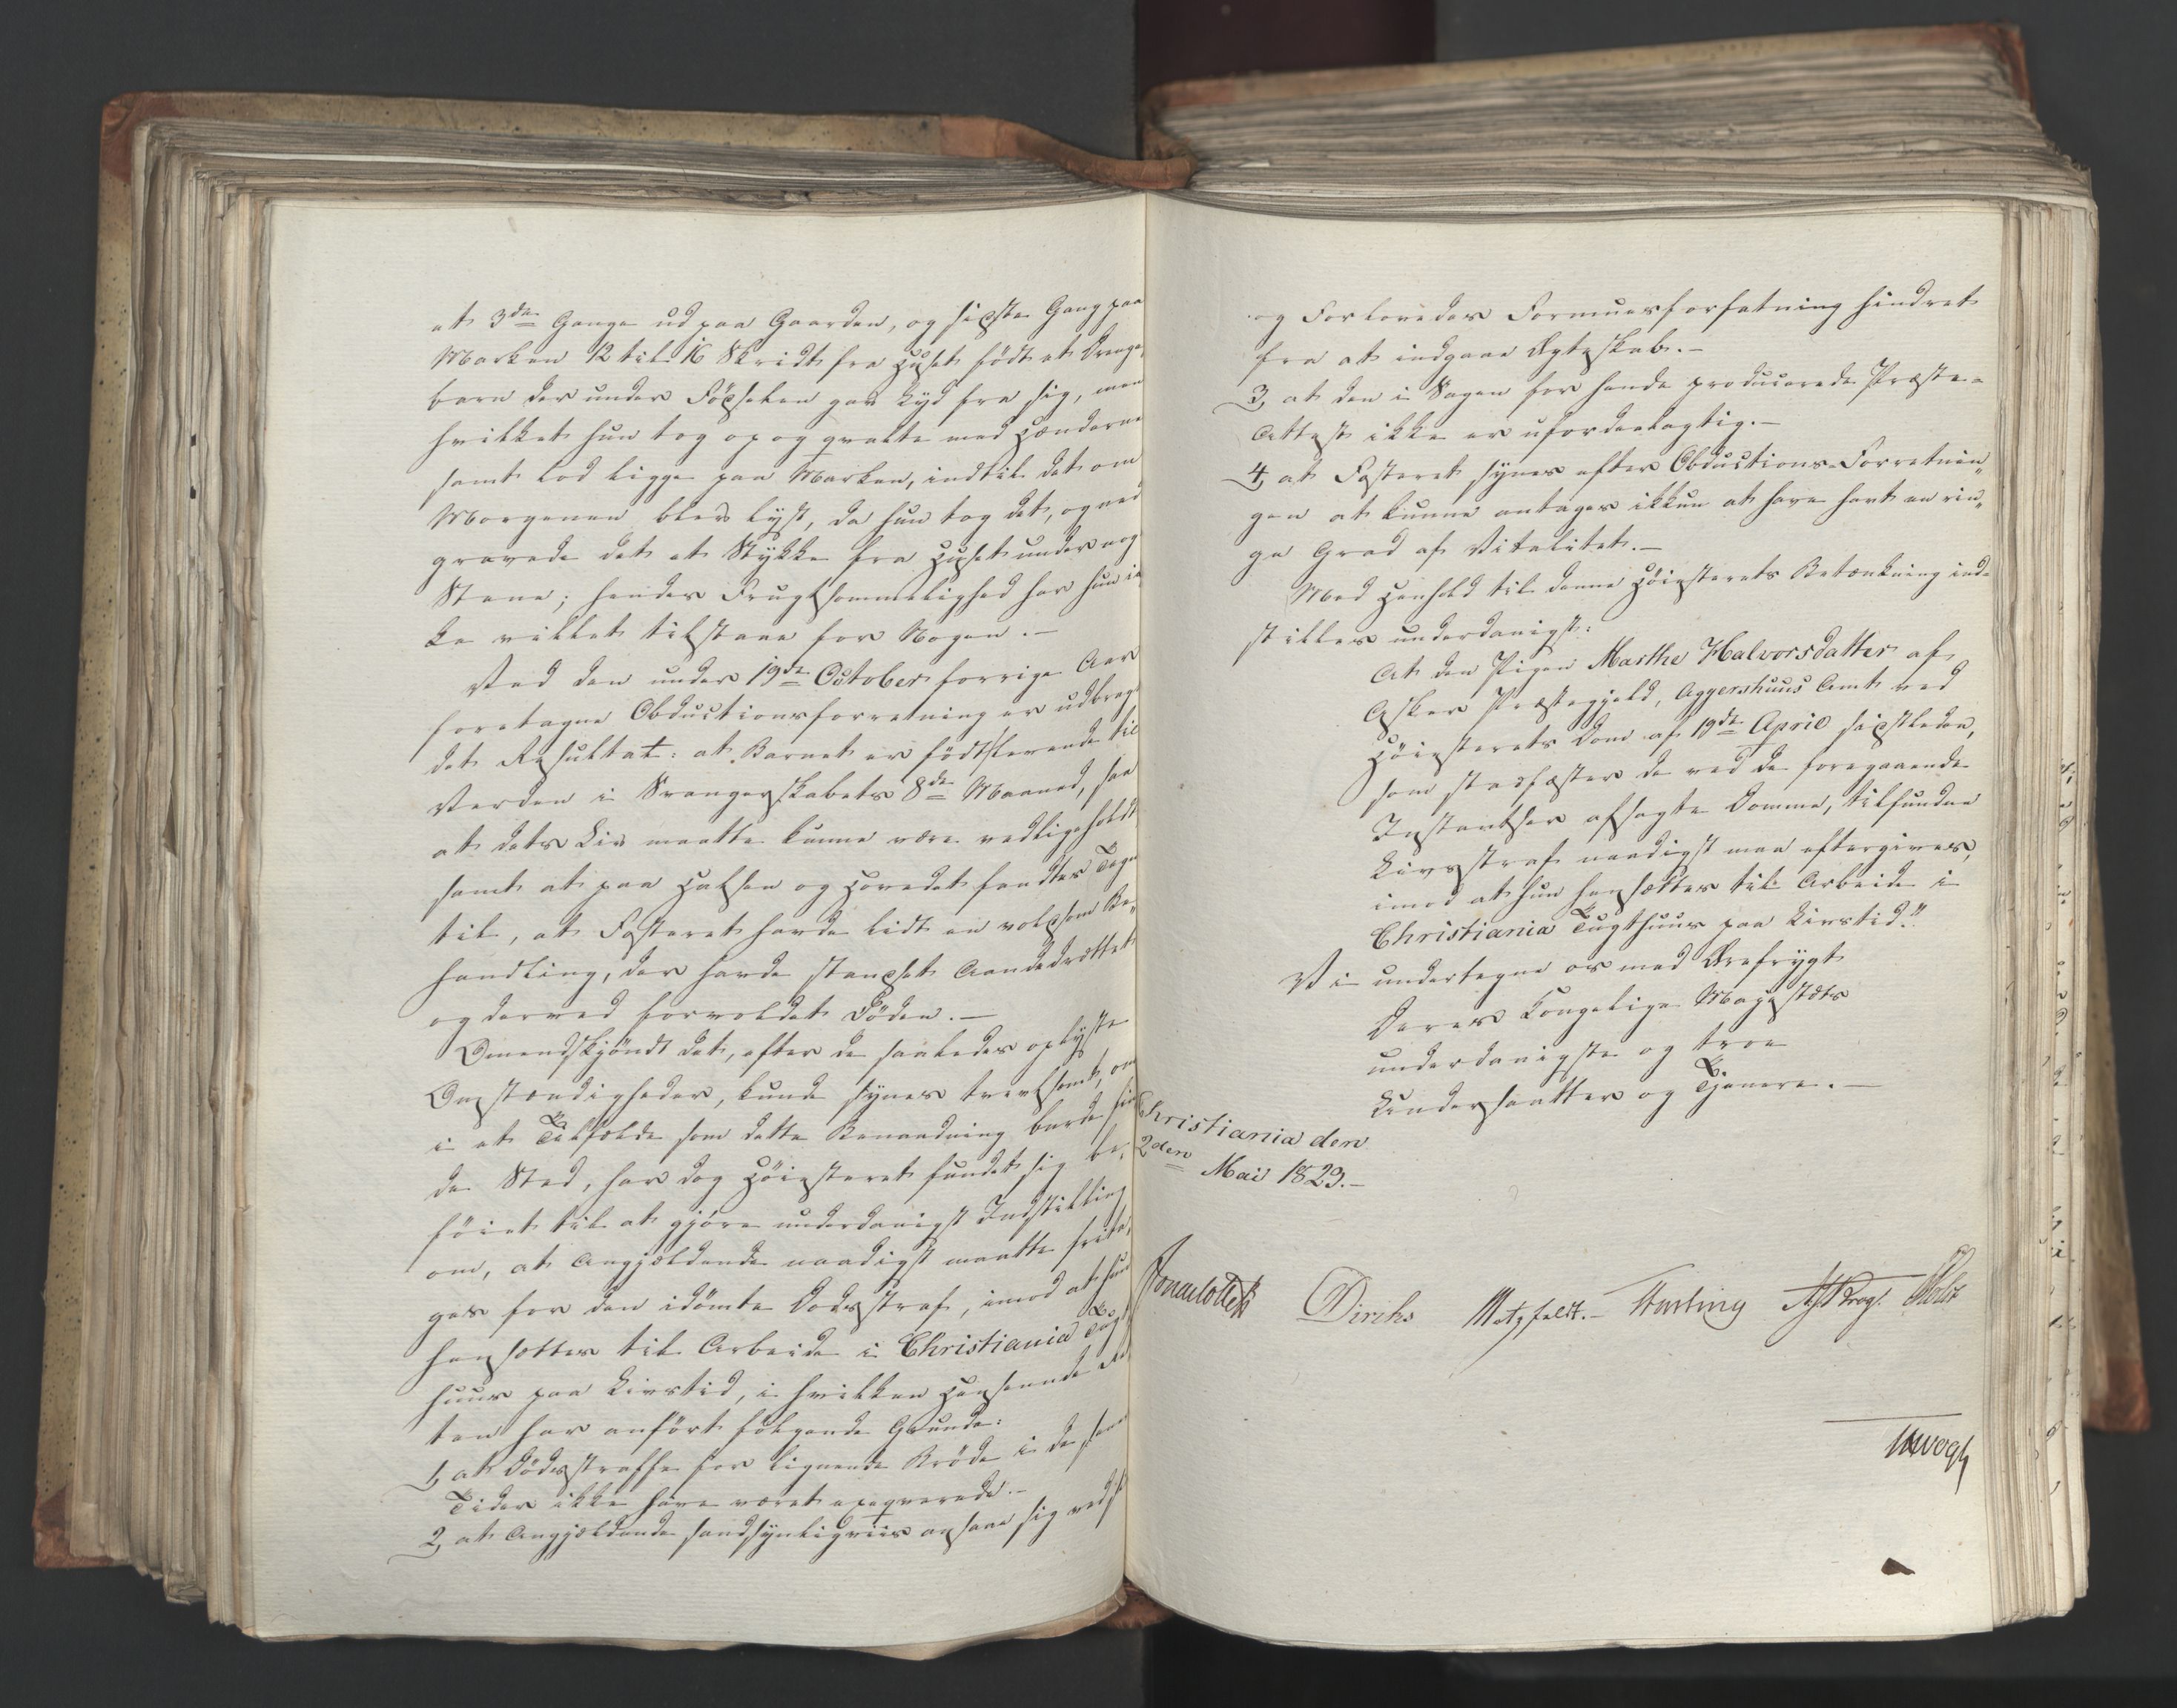 at 3de Gange ud paa Gaarden, og sidste Gang paa
Marken 12 til 16 Skridt fra Huset født et Drenge-
barn der under Fødselen gav Lyd fra sig, men
hvilket hun tog op og qvalte med Hænderne
samt lod ligge paa Marken, indtil det om
Morgenen blev lyst, da hun tog det, og ned
gravede det et Stykke fra Huset under nog
Stene; hendes Frugtsommelighed har hun ik
ke villet tilstaae for Nogen.-
Ved den under 19de October forrige Aar
foretagne Obductionsforretning er udbragt
det Resultat: at Barnet er født levende til
Verden i Svangerskabets 8de Maaned, saa
at dets Liv maatte kunne være vedligeholdt
samt at paa Halsen og Hovedet fandtes Tegn
til, at Fosteret havde lidt en voldsom Be„
handling, der havde standset Aandedrættet
og derved forvoldet Døden.-
Omendskjøndt det, efter de saaledes oplyste
Omstændigheder, kunde synes tvivlsomt, om
i et Tilfælde som dette Benaadning burde fin
de Sted, har dog Høiesteret fundet sig be„
føiet til at gjøre underdanigst Indstilling
om, at Angjældende naadigst maatte frita„
ges for den idømte Dødsstraf, imod at hun
hensættes til Arbeide i Christiania Tugt
huus paa Livstid, i hvilken Henseende Ret
ten har anført følgende Grunde:
1, at Dødsstraffe for lignende Brøde i de sen
Tider ikke have været exeqverede.-
2, at Angjældende sandsynligviis ansaae sig ved s
og Forlovedes Formuesforfatning hindret
fra at indgaae Ægteskab.-
3, at den i Sagen for hende producerede Præste-
Attest ikke er ufordeelagtig.-
4, at Fosteret synes efter Obductions-Forretnin„
gen at kunne antages ikkun at have havt en rin„
ge Grad af Vitalitet.-
Med Henhold til denne Høiesterets Betænkning ind-
stilles underdanigst:
At den Pigen Marthe Halvorsdatter af
Asker Præstegjeld, Aggershuus Amt ved
Høiesterets Dom af 19de April sidstleden,
som stadfæster de ved de foregaaende
Instantser afsagte Domme, tilfundne
Livsstraf naadigst maa eftergives,
imod at hun hensættes til Arbeide i
Christiania Tugthuus paa Livstid."
Vi undertegne os med Ærefrygt
Deres Kongelige Majestæts
underdanigste og troe
Undersaatter og Tjenere.-
Christiania den
2den Mai 1829.-
Jonas Collett Diriks Motzfeldt.- Fasting Krog. Holst
Vogt